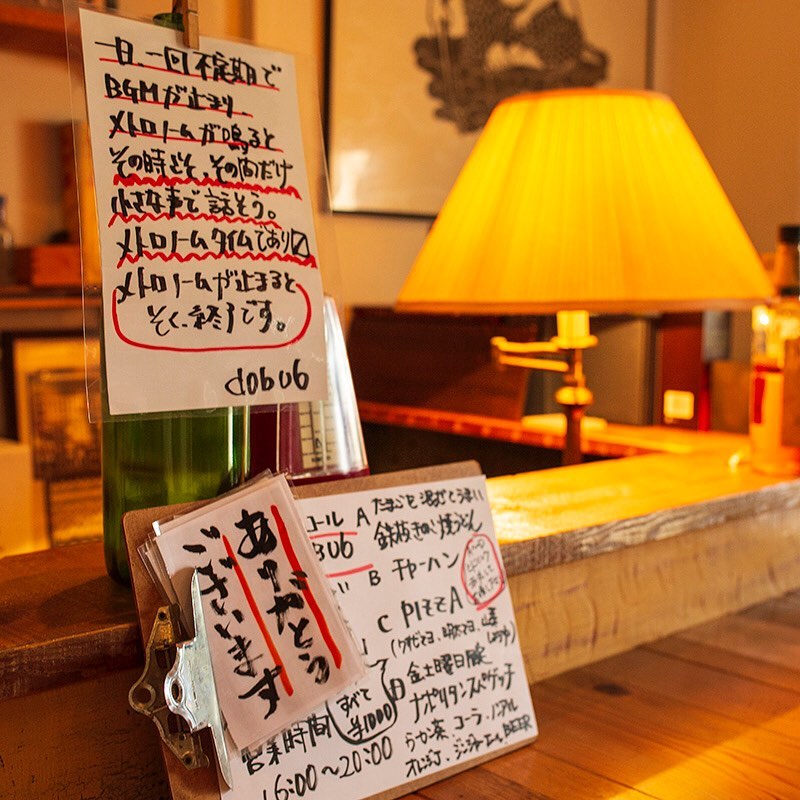 一日、一回不定期で
BGMが止まり
メトロノームが鳴ると
その時こそ、その間だけ
小さな声で話そう。
メトロノームタイムであり〼
メトロノームが止まると
そく、終了です。
dobu6
ありがとう
ございます
コール A たまごを混ぜてうまい
BU6 鉄板きのこ焼うどん
B チャーハン
C PIZZA
金土曜日限定
ナポリタンスパゲッチ
すべて
¥1000
らかん茶、コーラ、
オレンジ、ジンジャーエール、BEER
営業時間
16:00〜20:00